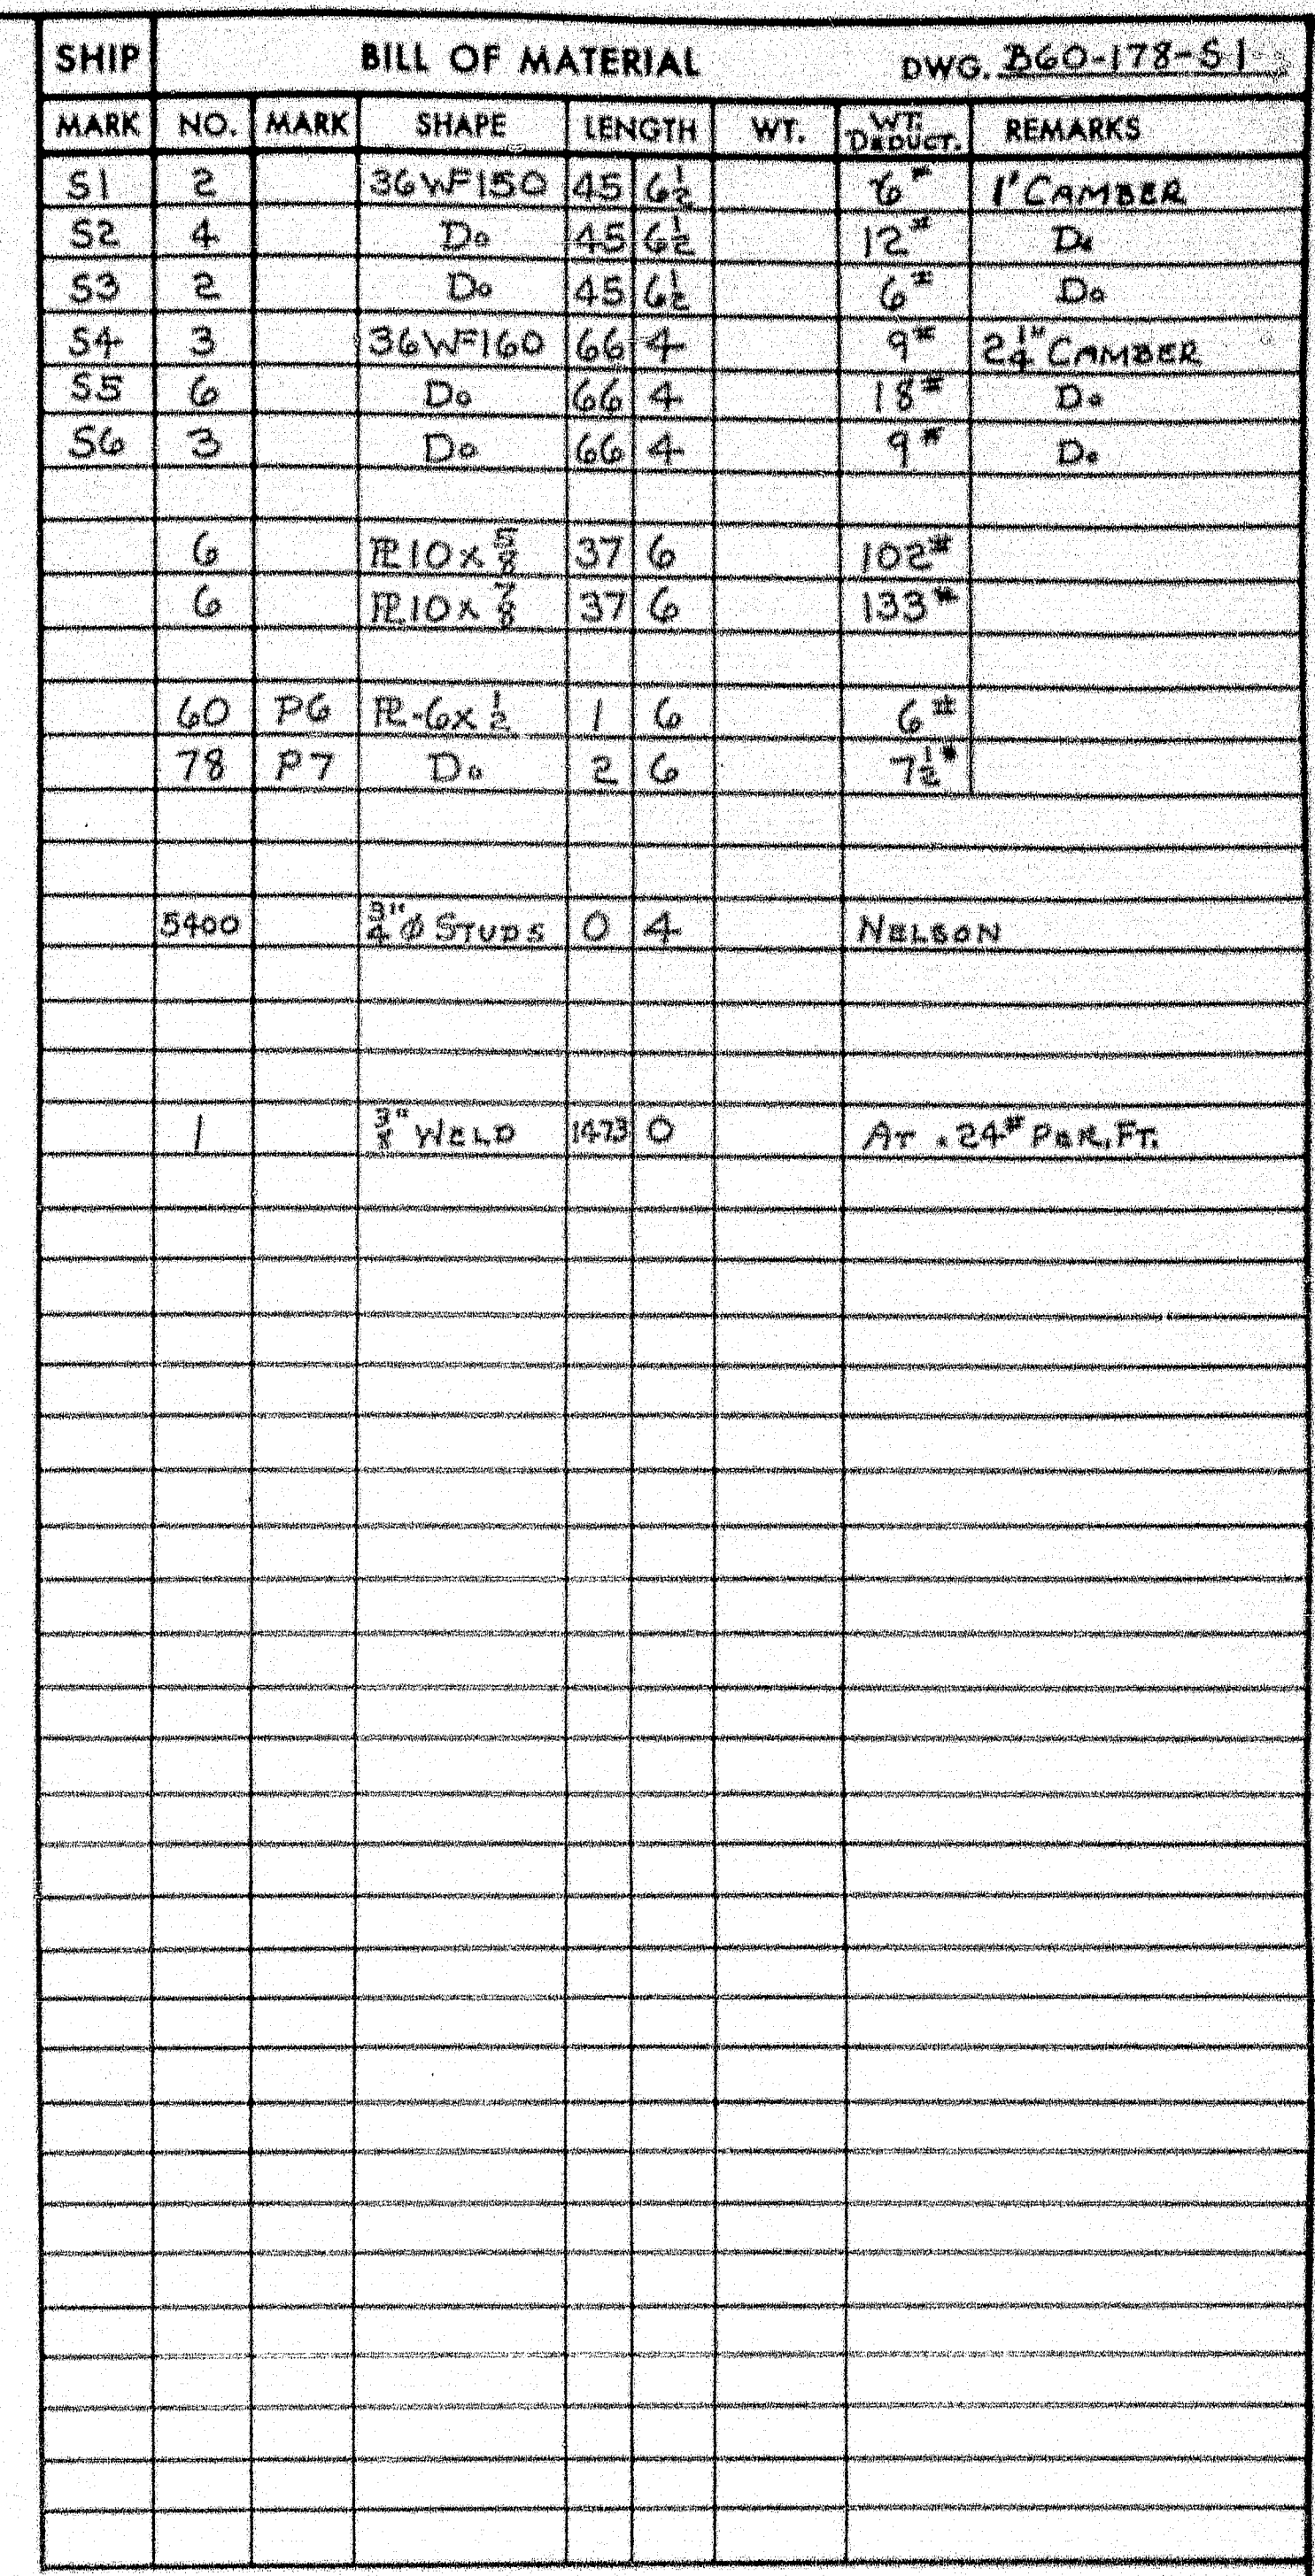 SHIP BILL OF MATERIAL DWG. B60-178-S1
MARK NO. MARK SHAPE LENGTH WT. WT. DEDUCT. REMARKS
S1 2 36WF150 45 6½ 6# 1" CAMBER
S2 4 Do 45 6½ 12# Do
S3 2 Do 45 6½ 6# Do
S4 3 36WF160 66 4 9# 2¼" CAMBER
S5 6 Do 66 4 18# Do
S6 3 Do 66 4 9# Do
6 PL10x⅝ 37 6 102#
6 PL10x⅞ 37 6 133#
60 P6 PL-6x½ 1 6 6#
78 P7 Do 2 6 7½#
5400 ¾"ø STUDS 0 4 NELSON
1 ⅜" WELD 1473 0 AT .24# PER.FT.